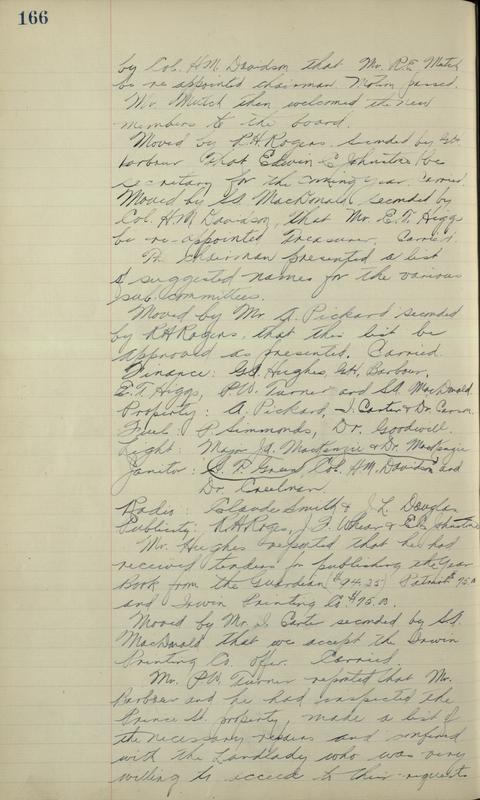 166
by Col. H.M. Davidson that Mr. R.E. Mutch
be re appointed chairman. Motion passed.
Mr. Mutch then welcomed the new
members to the board.
Moved by R.H. Rogers seconded by G.H.
Barbour that Edwin C. Johnstone be
secretary for the coming year. Carried.
Moved by S.A. MacDonald seconded by
Col. H.M. Davidson, that Mr. E.T. Higgs
be re-appointed Treasurer. Carried.
The Chairman presented a list
of suggested names for the various
sub. committees.
Moved by Mr. A. Pickard seconded
by R.H. Rogers, that this list be
approved as presented. Carried.
Finance: Hughes, G.H. Barbour,
E.T. Higgs, P.W. Turner and S.A. MacDonald.
Property: A. Pickard, I. Carter & Dr. Carson
Fuel: P. Simmonds, Dr. Goodwill.
Light: Major MacKenzie & Dr. MacKenzie
Janitor: Col. H.M. Davidson and
Dr. Creelman.
Radio: Claude Smith & J.L. Douglas
Publicity: R.H. Rogers, J.F. Whear & E.C. Johnstone
Mr. Hughes reported that he had
received tenders for publishing the Year
Book from the Guardian $94.25 Patriot $95.00
and Irwin Printing Co. $95.00.
Moved by Mr. I. Carter seconded by S.A.
MacDonald that we accept the Irwin
Printing Co. offer. Carried.
Mr. P.W. Turner reported that Mr.
Barbour and he had inspected the
Prince St. property, made a list of
the necessary repairs and confered
with the Landlady who was very
willing to acceed to their requests